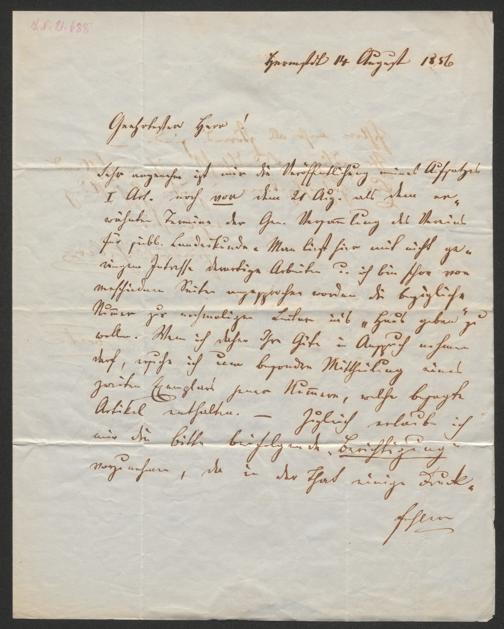 I.N. 21.688
Hermstdt 14 August 1856
Geehrtester Herr!
Sehr angenehm ist mir die Veröffentlichung meines Aufsatzes
I Art. noch vor dem 21 Aug. als dem er-
wähnten Termine der Gen. Versammlung des Vereins
für siebb. Landeskunde. Man liest hier mit nicht ge-
ringem Intresse derartige Arbeiten u. ich bin schon von
verschiednen Seiten angesprochen worden die bezügliche
Nummer zu nochmaligem Lesen ins „Haus geben" zu
wollen. Wenn ich daher Ihre Güte in Anspruch nehmen
darf, ersuche ich um besondre Mittheilung eines
zweiten Exemplars jener Nummern, welche besagte
Artikel enthalten. — Zugleich erlaube ich
mir die bitte beifolgende „Berichtigung"
vorzunehmen, da in der That einige Druck-
fehler